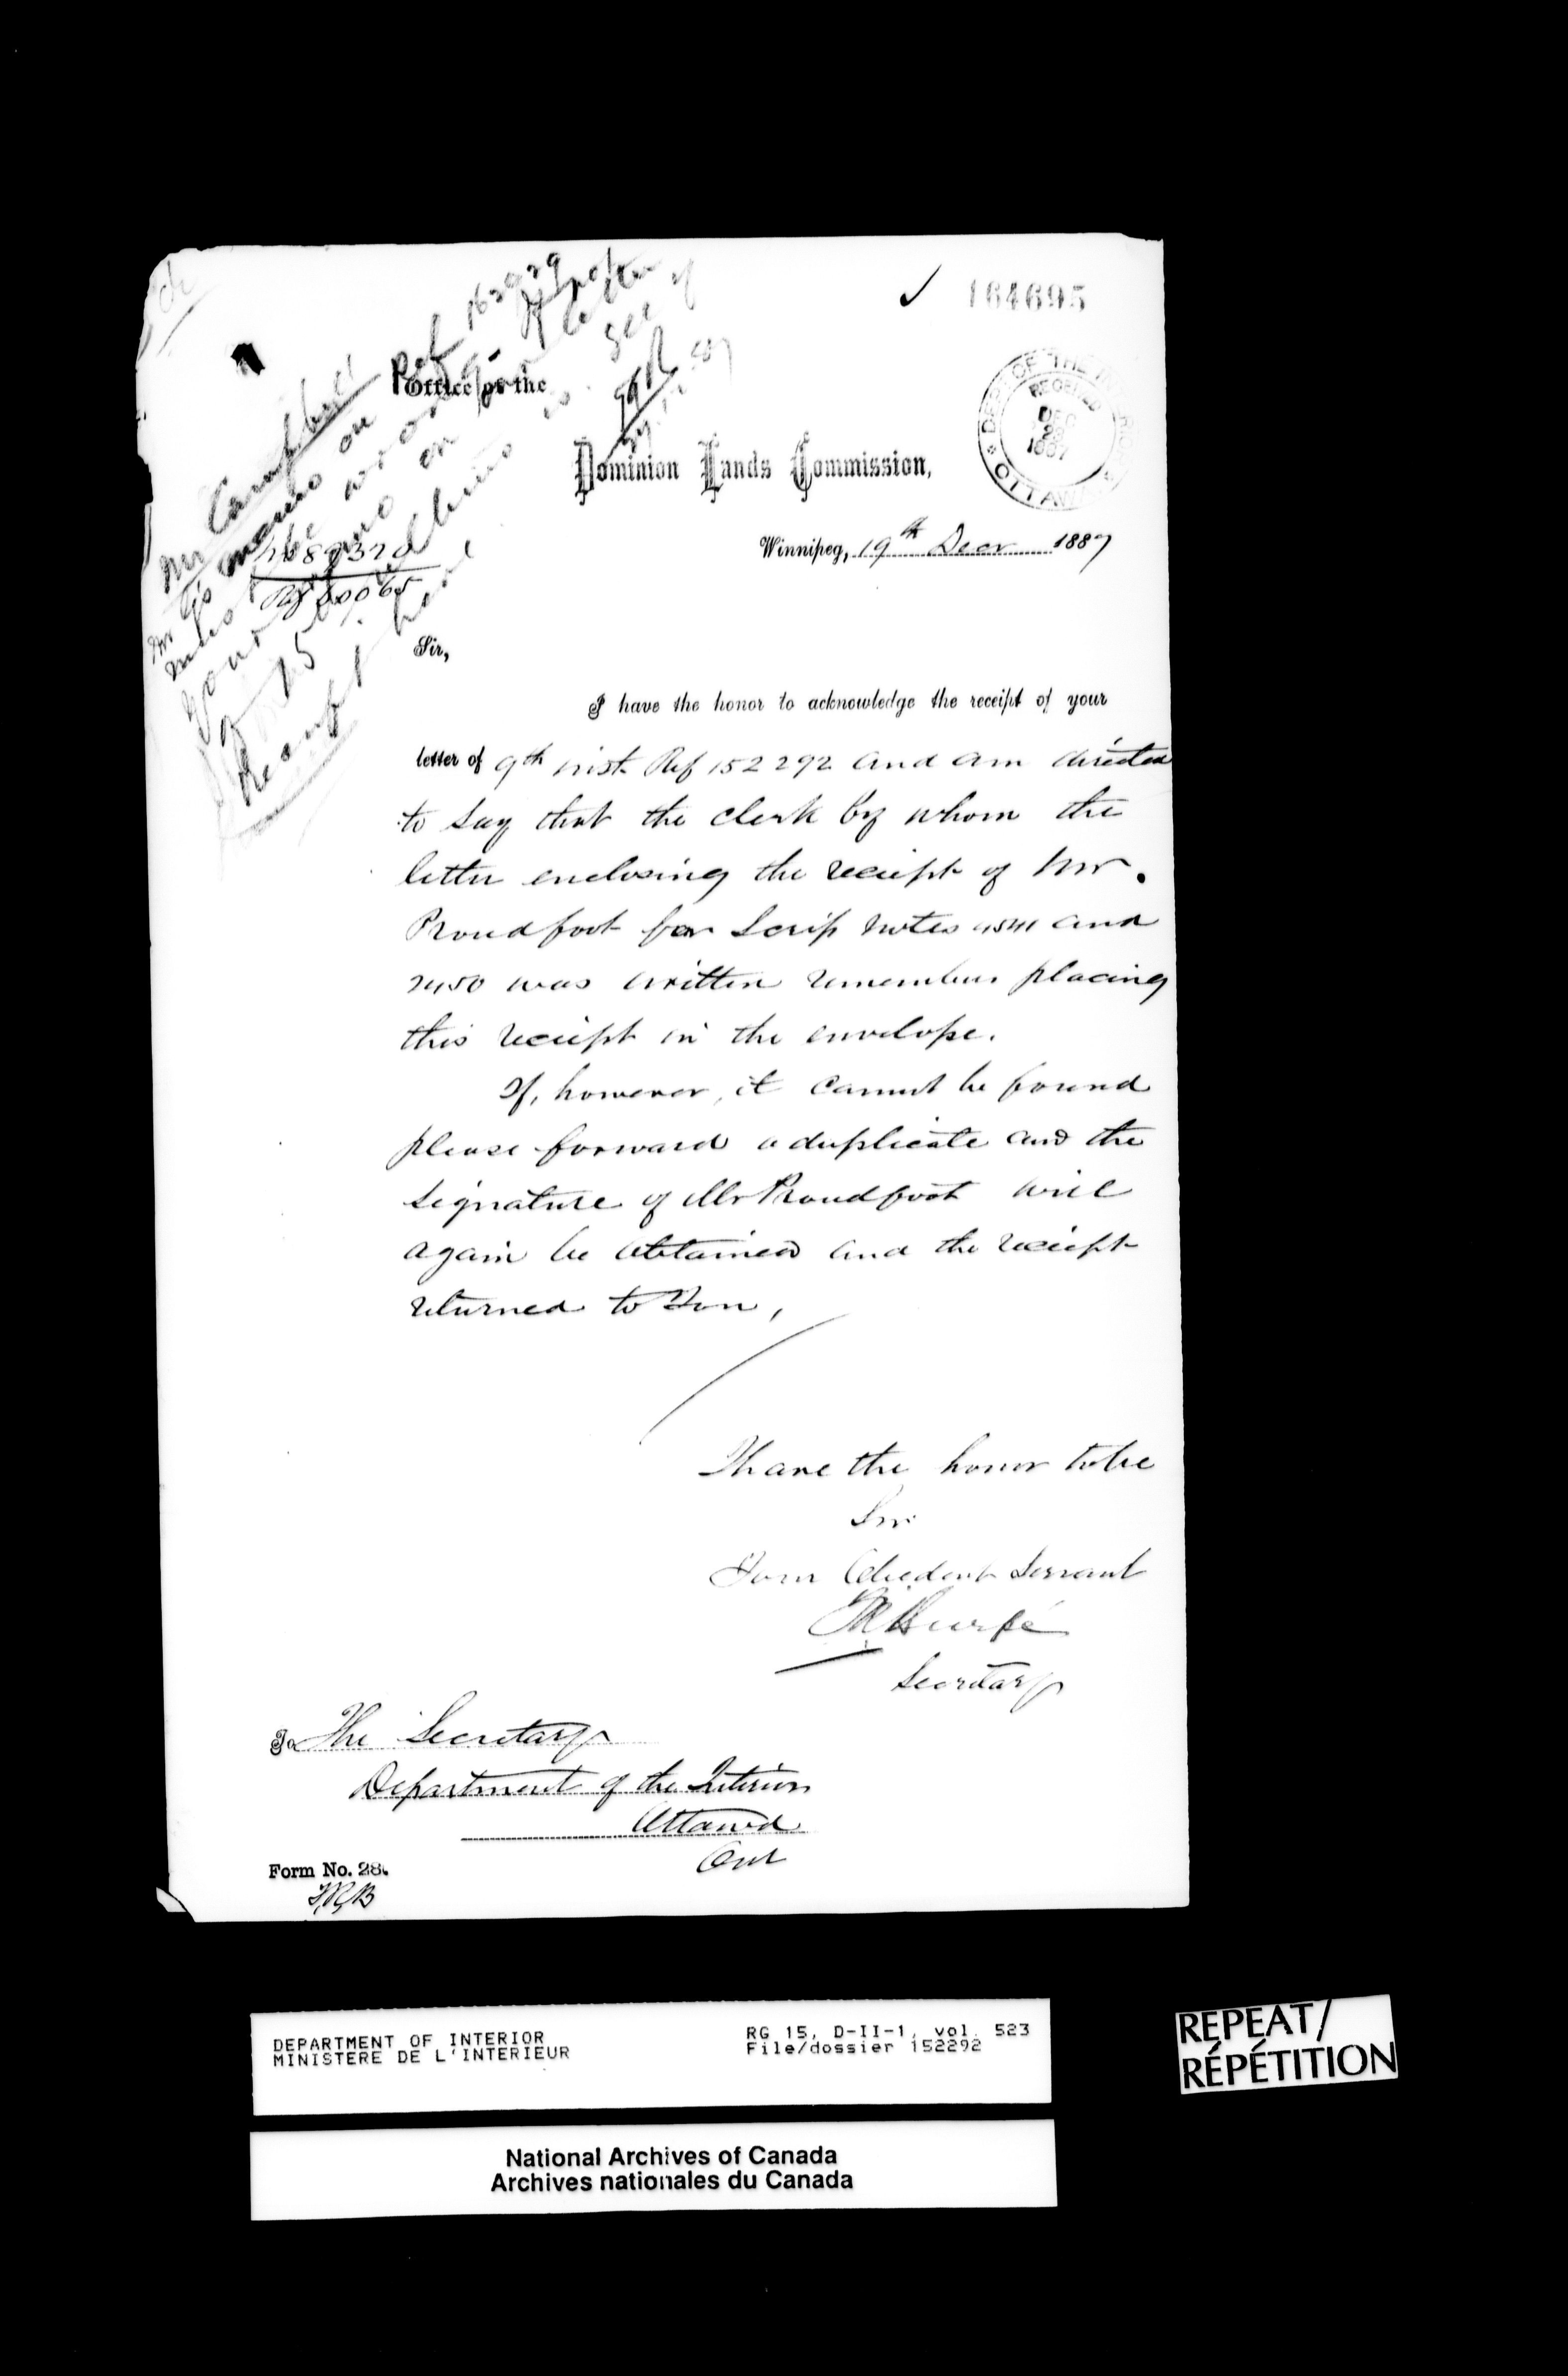 164695
Office of the
Dominion Lands Commission,
DEPT OF THE INTERIOR
RECEIVED
DEC
1887
OTTAWA
Winnipeg, 19th Decr 1887
Mr Campbell
Ref 162929
Sir,
I have the honor to acknowledge the receipt of your
letter of 9th inst. Ref 152292 and am directed
to say that the clerk by whom the
letter enclosing the receipt of Mr.
Proudfoot for Scrip notes and
2450 was written remembers placing
this receipt in the envelope.
If, however, it cannot be found
please forward a duplicate and the
signature of Mr Proudfoot will
again be obtained and the receipt
returned to You,
I have the honor to be
Sir
Your Obedient Servant
Secretary
To The Secretary
Department of the Interior
Ottawa
Ont
Form No. 28.
DEPARTMENT OF INTERIOR
MINISTERE DE L'INTERIEUR
RG 15, D-II-1, vol. 523
File/dossier 152292
REPEAT/
RÉPÉTITION
National Archives of Canada
Archives nationales du Canada